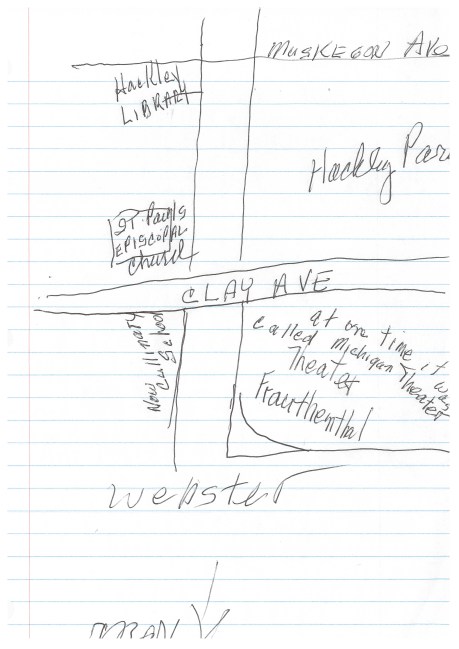 MUSKEGON AVE
Hackley
LIBRARY
Hackley Par
ST. Paul's
EPISCOPAL
Church
CLAY AVE
Now
Cullinary
School
at one time it was
called Michigan Theater
Theater
Frauthenthal
Webster